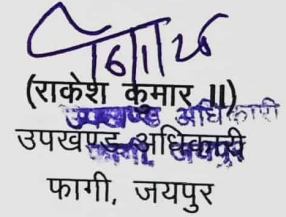 (राकेश कुमार II)
उपखण्ड अधिकारी
उपखण्ड अधिकारी
फागी, जयपुर
फागी, जयपुर